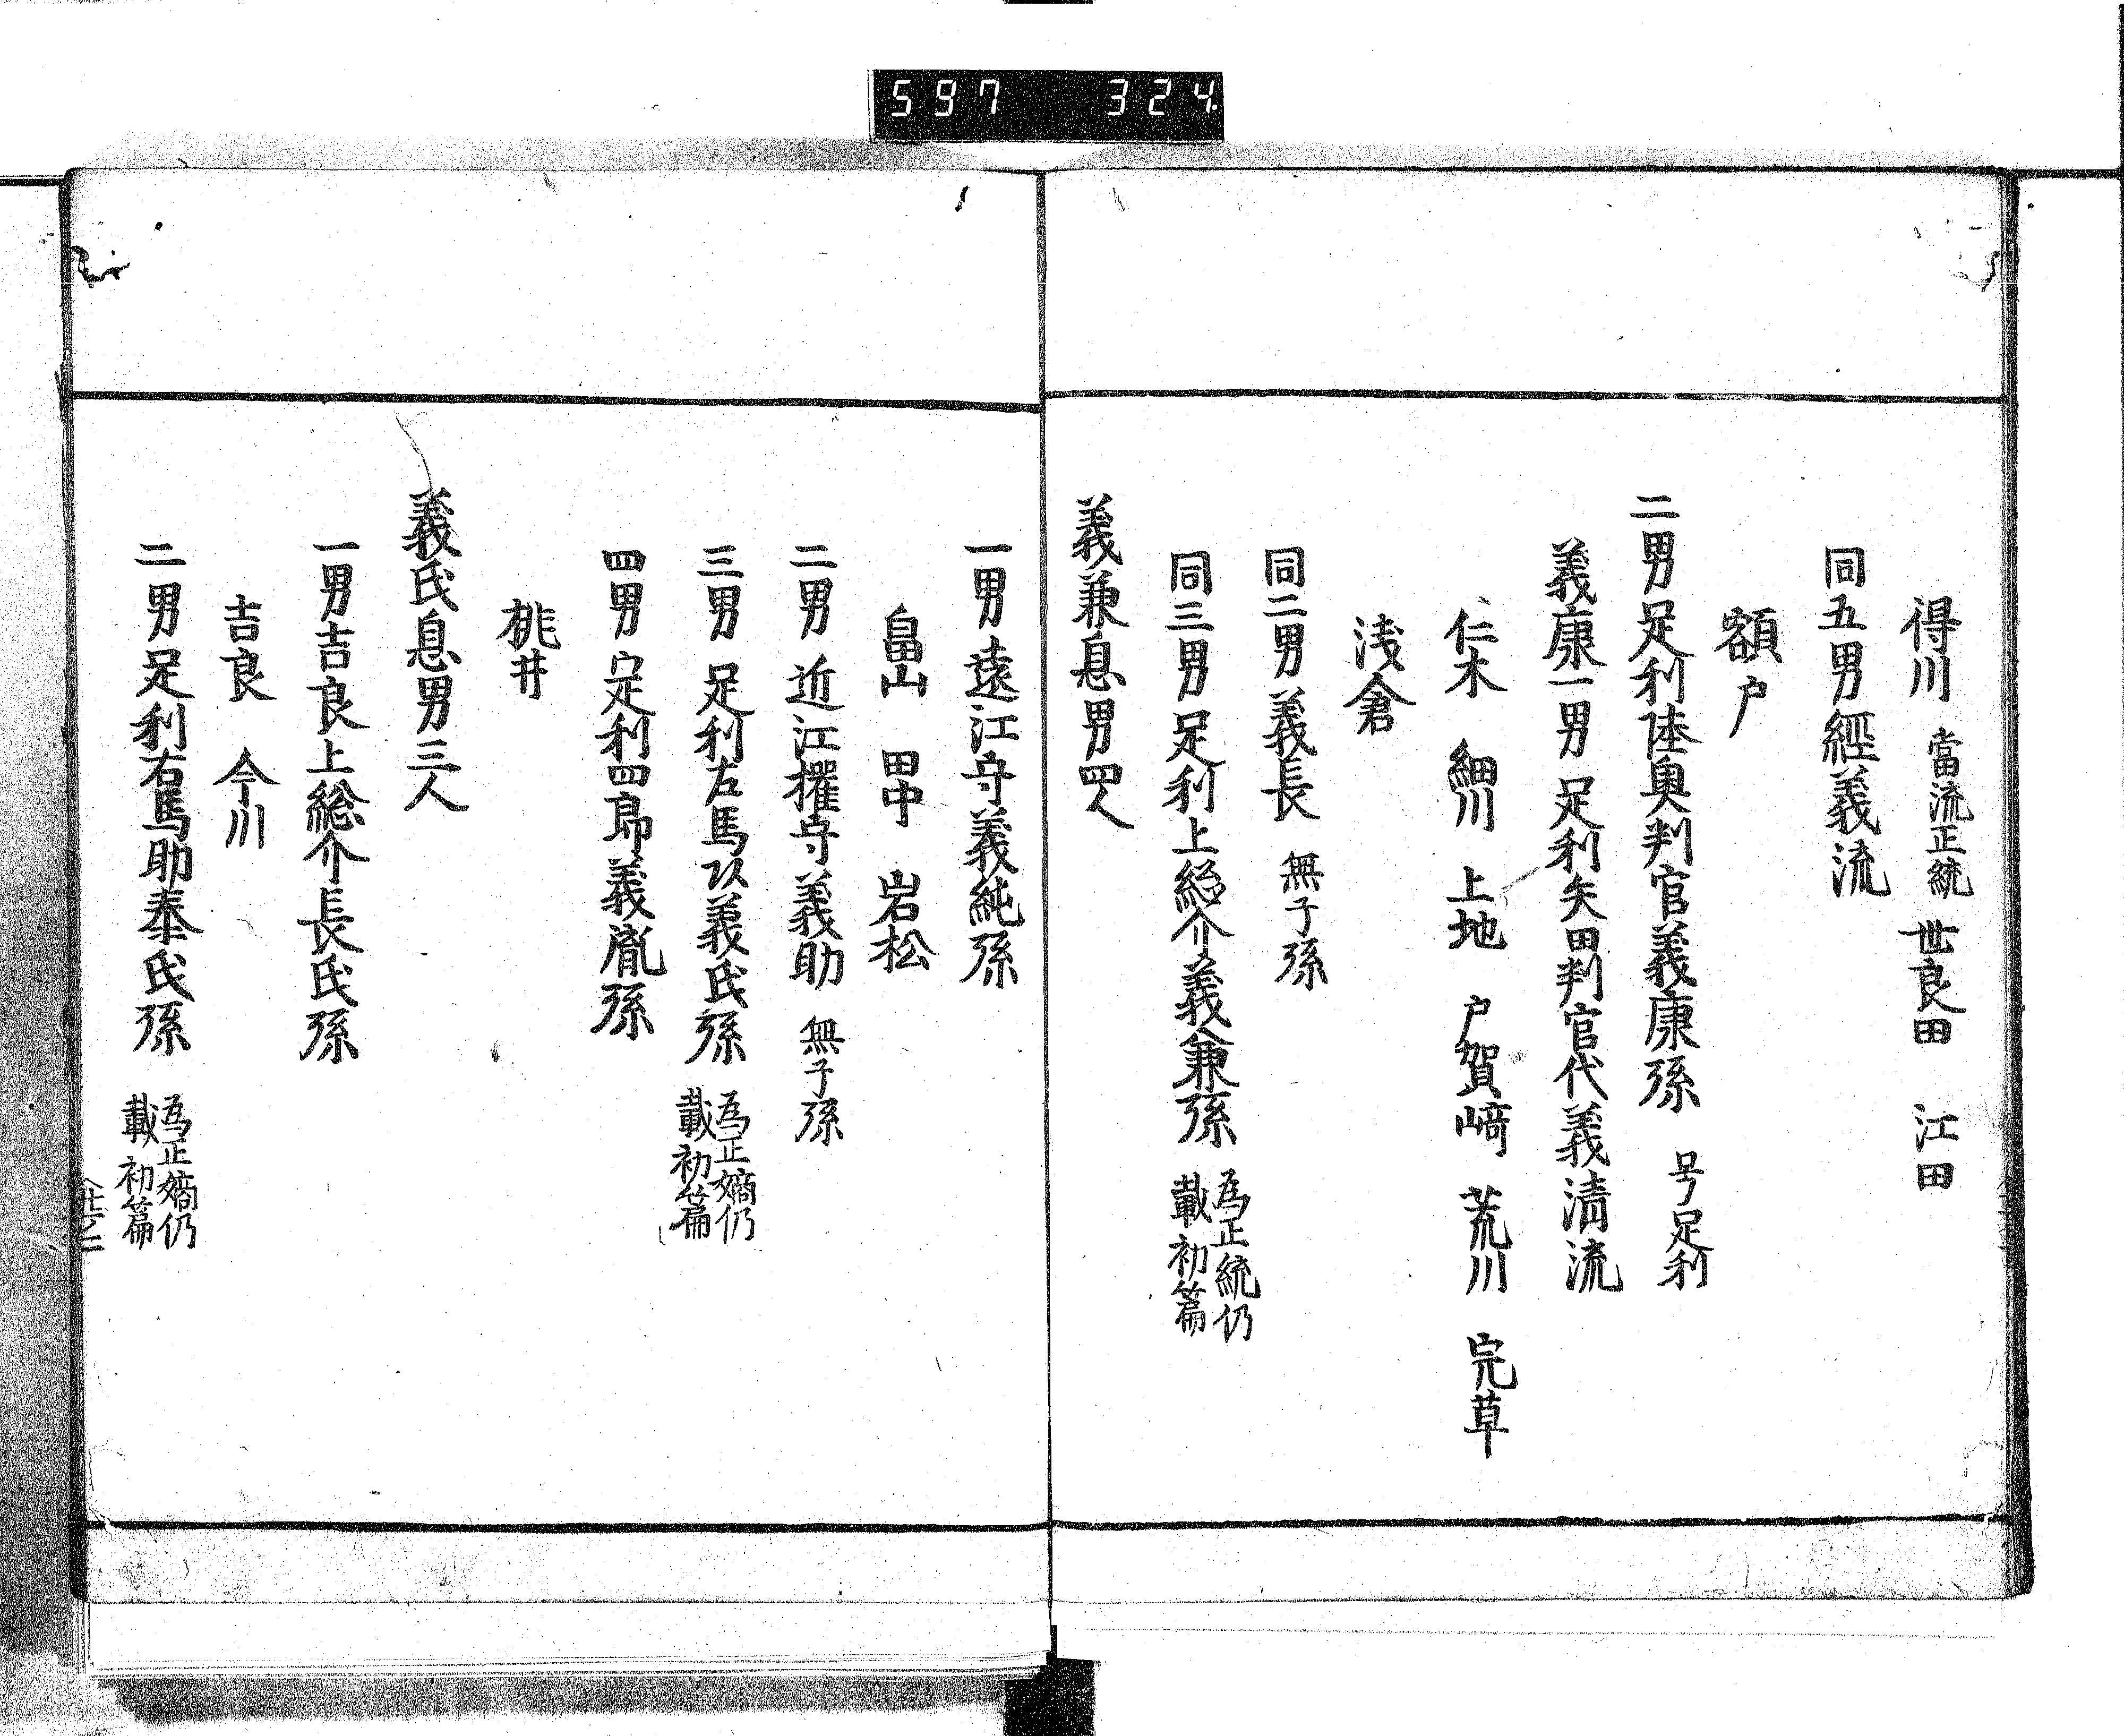 597 324
得川 當流正統 世良田 江田
同五男經義流
額戸
二男足利陸奥判官義康孫 号足利
義康一男足利矢田判官代義清流
仁木 細川 上地 戸賀﨑 荒川 宍草
浅倉
同二男義長 無子孫
同三男足利上総介義兼孫 為正統仍
載初篇
義兼息男四人
一男遠江守義純孫
畠山 田中 岩松
二男近江權守義助 無子孫
三男足利左馬頭義氏孫 為正嫡仍
載初篇
四男足利四郎義胤孫
桃井
義氏息男三人
一男吉良上総介長氏孫
吉良 今川
二男足利右馬助泰氏孫 為正嫡仍
載初篇